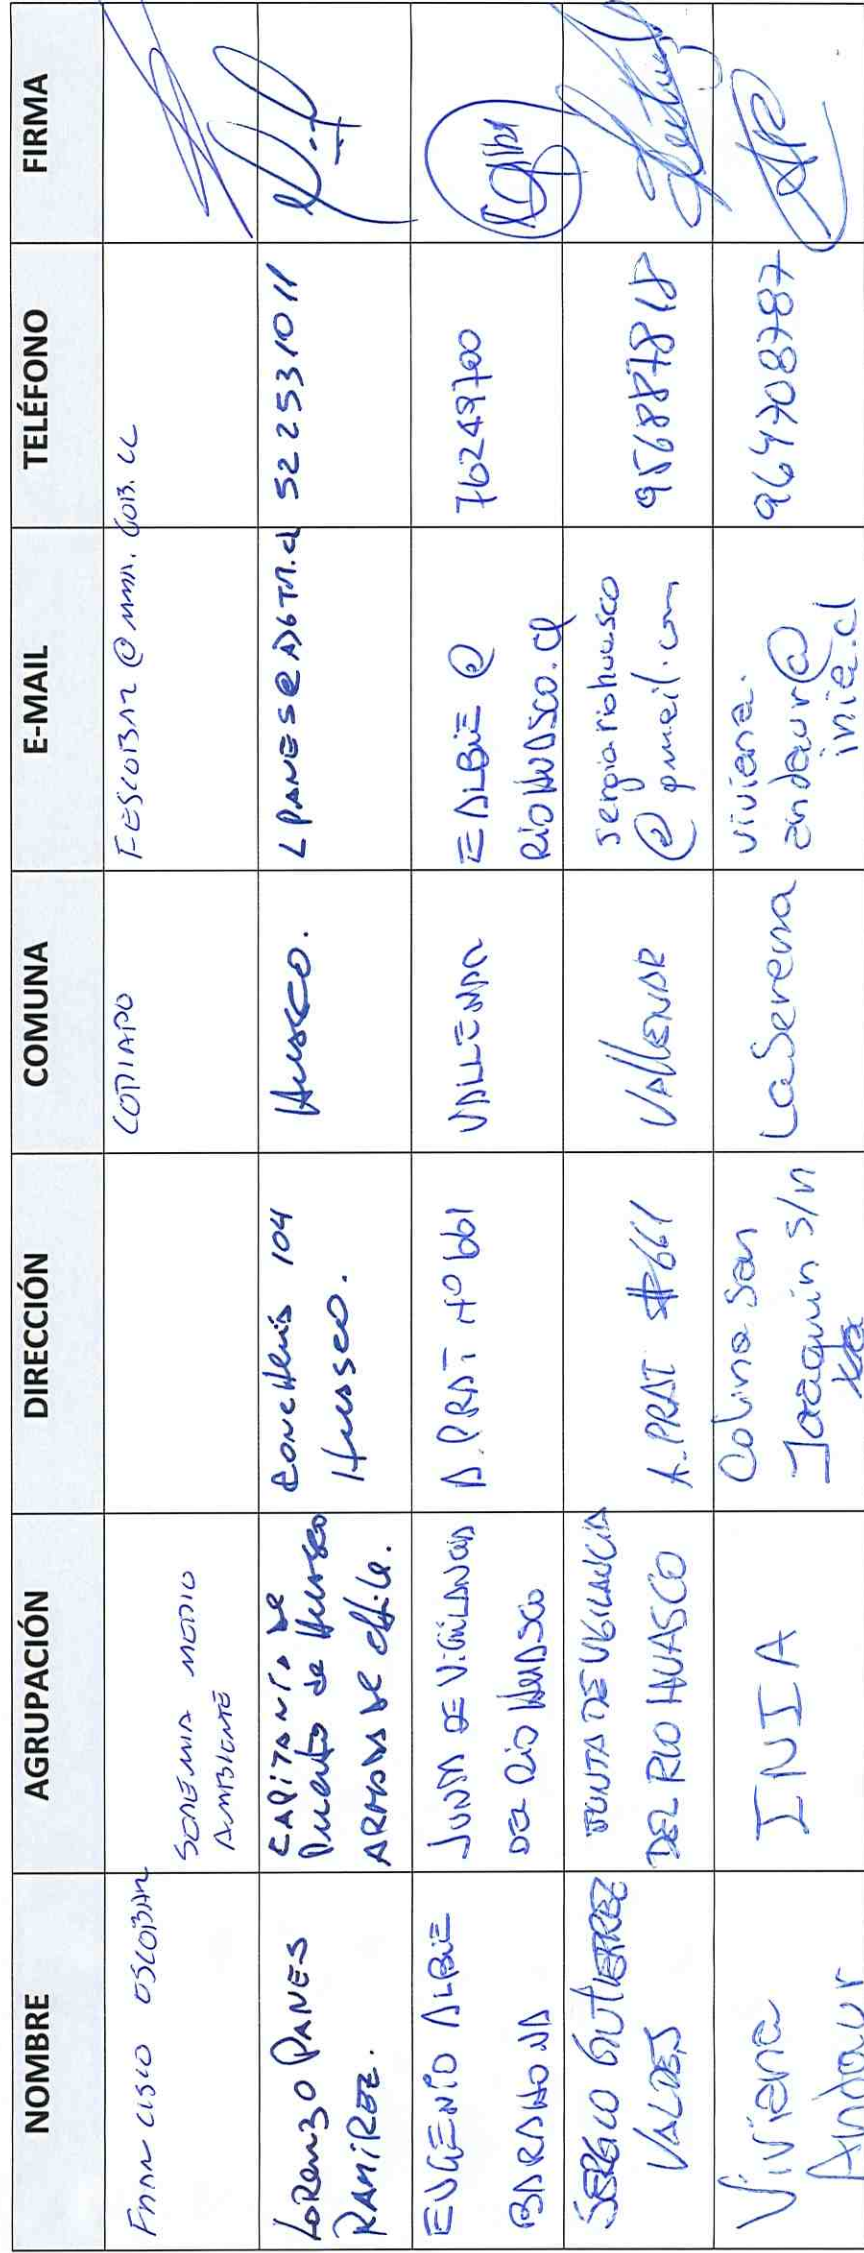 NOMBRE AGRUPACIÓN DIRECCIÓN COMUNA E-MAIL TELÉFONO FIRMA
FRANCISCO ESCOBAR
SEREMIA MEDIO
AMBIENTE
COPIAPO
FESCOBAR@MMA.GOB.CL
LORENZO PANES
RAMIREZ.
CAPITANIA DE
Puerto de Huasco
ARMADA DE chile.
104
Huasco.
Huasco.
LPANES@DGTM.cl
522531011
EUGENIO ALBIE
BARAHONA
JUNTA DE VIGILANCIA
DEL Rio HUASCO
A. PRAT N° 661
VALLENAR
EALBIE@
RIOHUASCO.CL
76249700
SERGIO GUTIERREZ
VALDES
JUNTA DE VIGILANCIA
DEL RIO HUASCO
A. PRAT #661
VALLENAR
sergioriohuasco
@gmail.com
956887818
Viviana
Andaur
INIA
Colina San
Joaquin s/n
La Serena
viviana.
andaur@
inia.cl
964708787